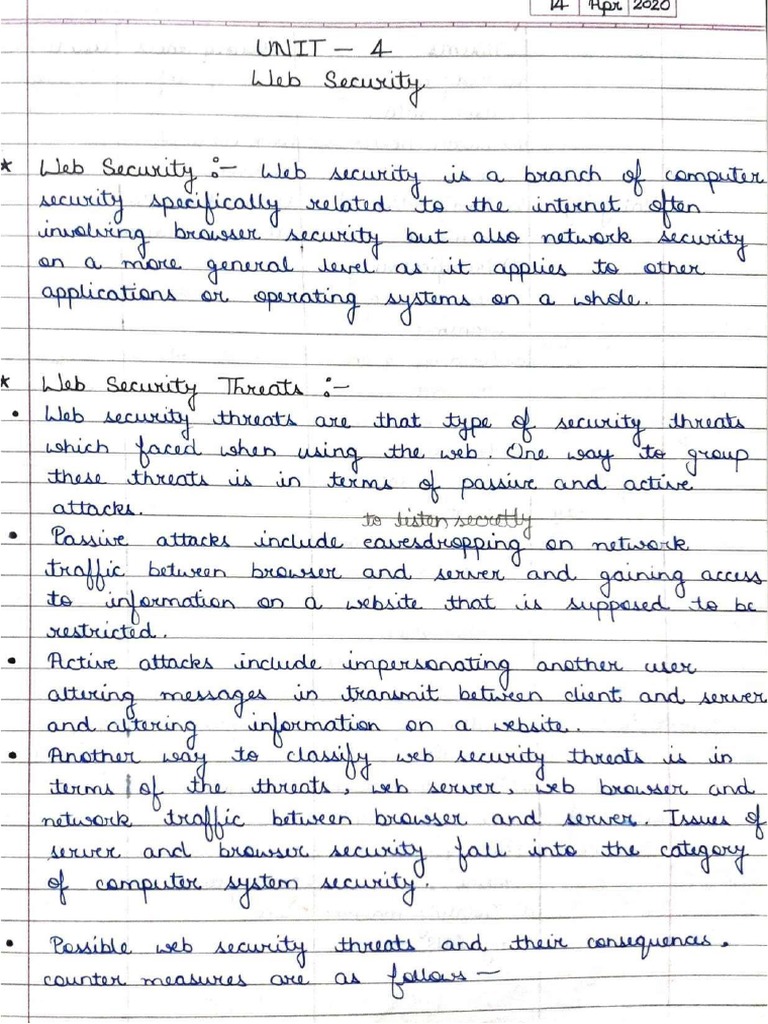 14 Apr 2020
UNIT - 4
Web Security
* Web Security :- Web security is a branch of computer
security specifically related to the internet often
involving browser security but also network security
on a more general level as it applies to other
applications or operating systems on a whole.
* Web Security Threats :-
• Web security threats are that type of security threats
which faced when using the web. One way to group
these threats is in terms of passive and active
attacks.
to listen secretly
• Passive attacks include eavesdropping on network
traffic between browser and server and gaining access
to information on a website that is supposed to be
restricted.
• Active attacks include impersonating another user
altering messages in transmit between client and server
and altering information on a website.
• Another way to classify web security threats is in
terms of the threats, web server, web browser and
network traffic between browser and server. Issues of
server and browser security fall into the category
of computer system security.
• Possible web security threats and their consequences.
counter measures are as follows —